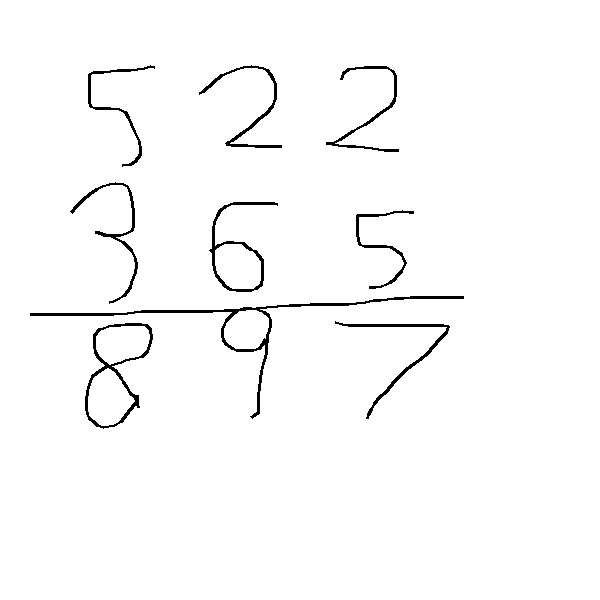 522
365
897